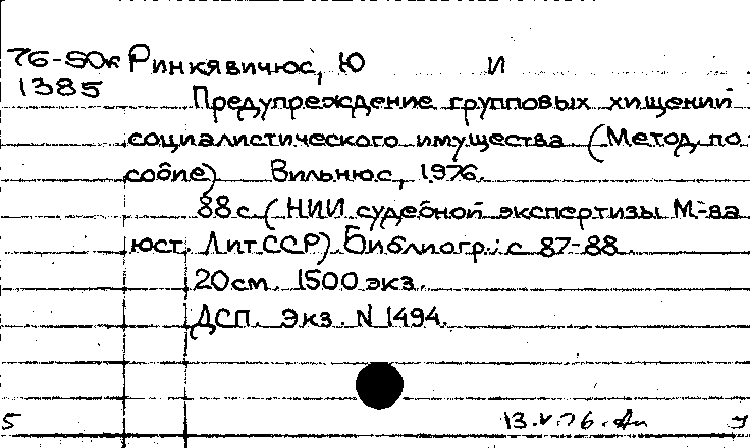 76-50к Ринкявичюс, Ю И
1385
Предупреждение групповых хищений
социалистического имущества (Метод. по
собие) Вильнюс, 1976.
88 с. (НИИ судебной экспертизы М-ва
юст. ЛитССР) Библиогр.: с 87-88.
20 см. 1500 экз.
ДСП. Экз. N 1494.
5 13.V.76.